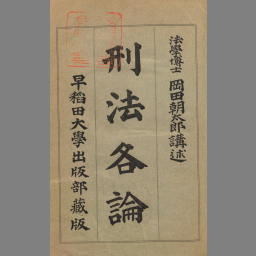 法學博士 岡田朝太郎講述
刑法各論
早稻田大學出版部藏版